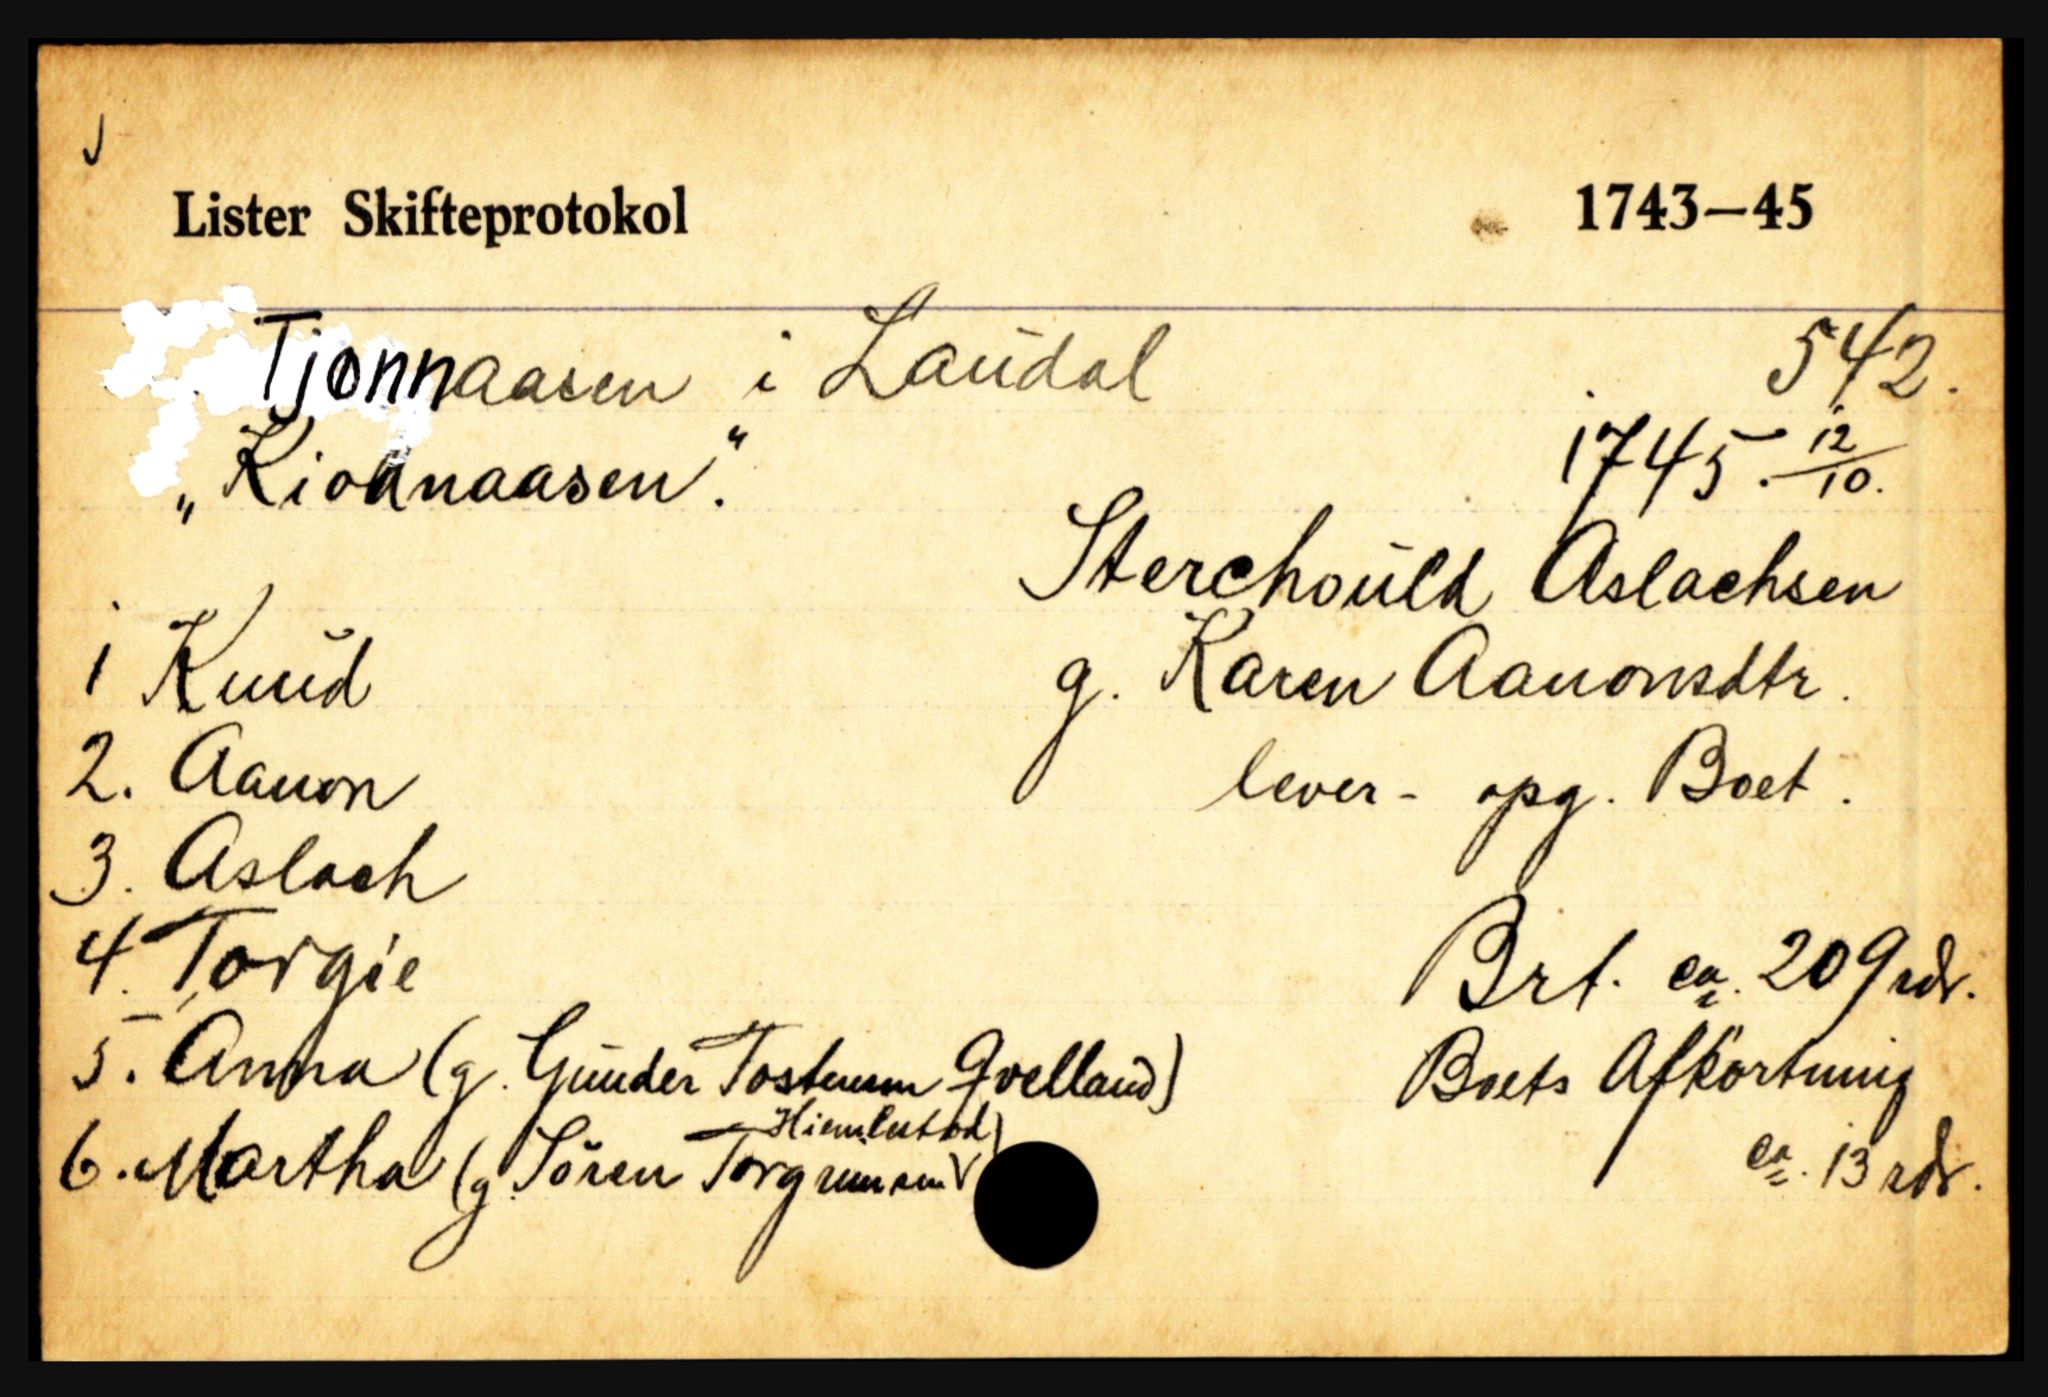 Lister Skifteprotokol 1743–45
Tjonnaasen i Laudal 542.
„Kionnaasen". 1745. 12/10.
Sterchould Aslachsen
1 Knud g. Karen Aanonsdtr.
2. Aanon lever - opg. Boet.
3. Aslach
4. Torgie Brt. ca. 209 rdr.
5. Anna (g. Gunder Tostensen Qvelland) Boets Afkortning
Hiemlestad)
6. Martha (g. Sören Torgrimsen ca. 13 rdr.